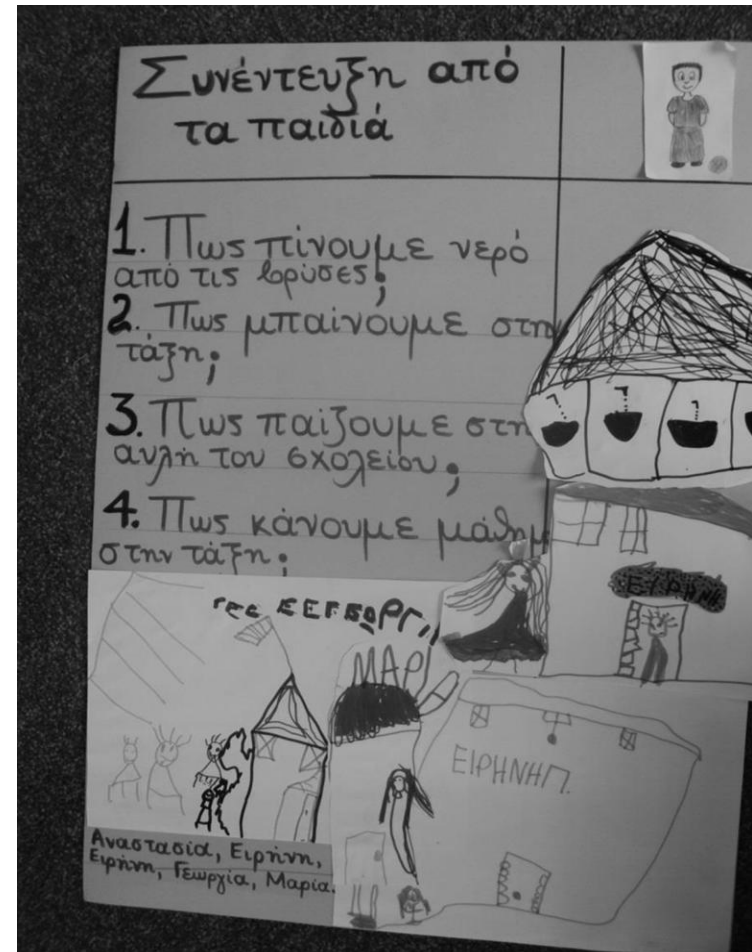 Συνέντευξη από
τα παιδιά
1. Πως πίνουμε νερό
από τις βρύσες;
2. Πως μπαίνουμε στην
τάξη;
3. Πως παίζουμε στη
αυλή του σχολείου;
4. Πως κάνουμε μάθημ
στην τάξη;
ΕΙΡΗΝΗ
ΜΑΡΙ
ΕΙΡΗΝΗΠ.
Αναστασία, Ειρήνη,
Ειρήνη, Γεωργία, Μαρία.